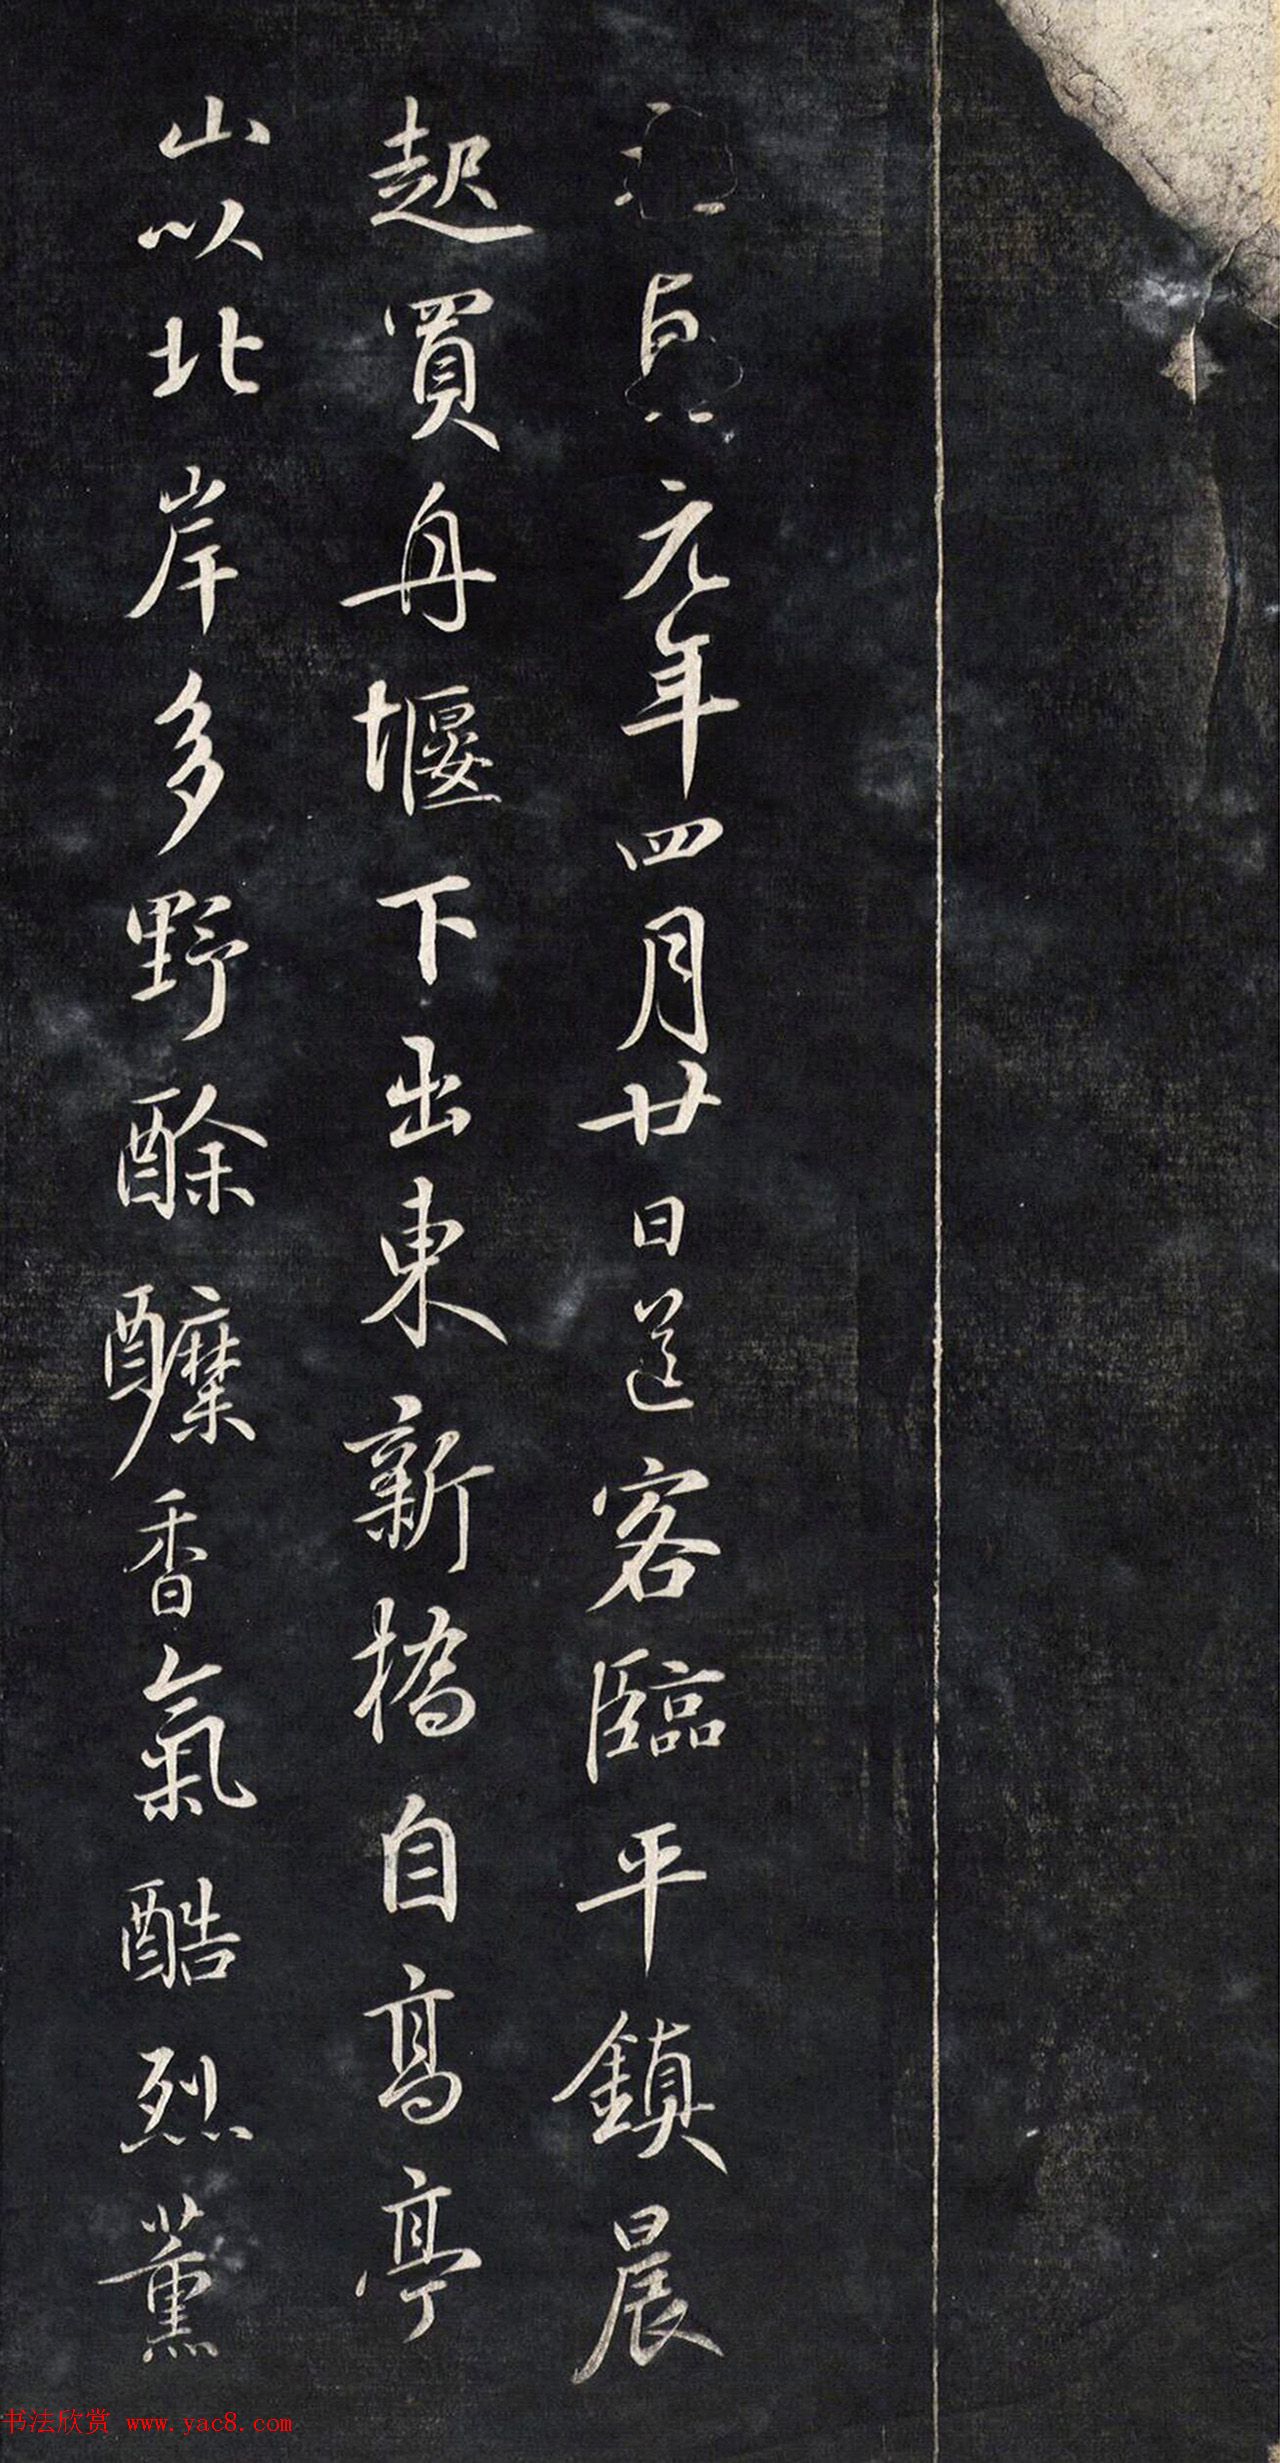 元年四月廿日送客臨平鎮晨
起買舟堰下出東新橋自高亭
山以北岸多野酴醾香氣酷烈薰
书法欣赏 www.yac8.com